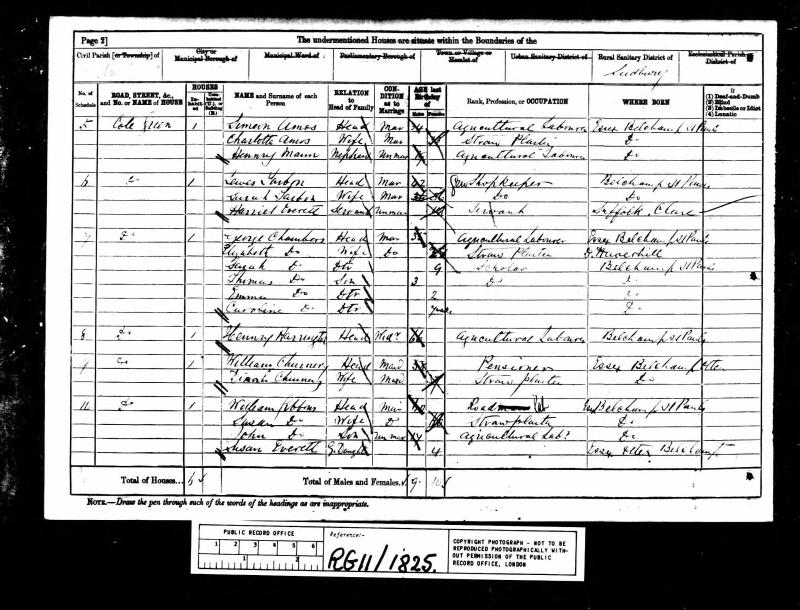 Page 2]
The undermentioned Houses are situate within the Boundaries of the
Civil Parish [or Township] of
City or Municipal Borough of
Municipal Ward of
Parliamentary Borough of
Town or Village or Hamlet of
Urban Sanitary District of
Rural Sanitary District of
Sudbury
Ecclesiastical Parish or District of
No. of Schedule
ROAD, STREET, &c., and No. or NAME of HOUSE
HOUSES
In-habited
Uninhabited (U.), or Building (B.)
NAME and Surname of each Person
RELATION to Head of Family
CONDITION as to Marriage
AGE last Birthday of
Males
Females
Rank, Profession, or OCCUPATION
WHERE BORN
If
(1) Deaf-and-Dumb
(2) Blind
(3) Imbecile or Idiot
(4) Lunatic
5 Cole Green 1 Simeon Amos Head Mar Agricultural Labourer Essex Belchamp St Pauls
Charlotte Amos Wife Mar Straw Plaiter Do
Henry Mann Nephew Unmar Agricultural Labourer Do
6 Do 1 Lewis Head Mar 42 Shopkeeper Belchamp St Pauls
Sarah Wife Mar Do Do
Harriet Everett Servant Unmar Servant Suffolk, Clare
7 Do 1 George Chambers Head Mar 35 Agricultural Labourer Essex Belchamp St Pauls
Elizabeth Do Wife Do Straw Plaiter Do Haverhill
Sarah Do Dtr 9 Scholar Belchamp St Pauls
Thomas Do Son 3 Do Do
Emma Do Dtr 2 Do
Caroline Do Dtr Do
8 Do 1 Henry Harrington Head Widr 66 Agricultural Labourer Belchamp St Pauls
9 Do 1 William Head Mard Pensioner Essex Belchamp Otten
Wife Mard Straw plaiter Do
11 Do 1 William Gibbons Head Mar Road Belchamp St Pauls
Susan Do Wife Do Straw plaiter Do
John Do Son Unmar 14 Agricultural Lab. Do
Susan Everett G. Daught 4 Essex Otten Belchamp
Total of Houses... 6
Total of Males and Females.. 9 10
NOTE.—Draw the pen through such of the words of the headings as are inappropriate.
PUBLIC RECORD OFFICE
1 2 3 4 5 6
1 2
Reference:-
RG11/1825.
COPYRIGHT PHOTOGRAPH - NOT TO BE
REPRODUCED PHOTOGRAPHICALLY WITH-
OUT PERMISSION OF THE PUBLIC
RECORD OFFICE, LONDON